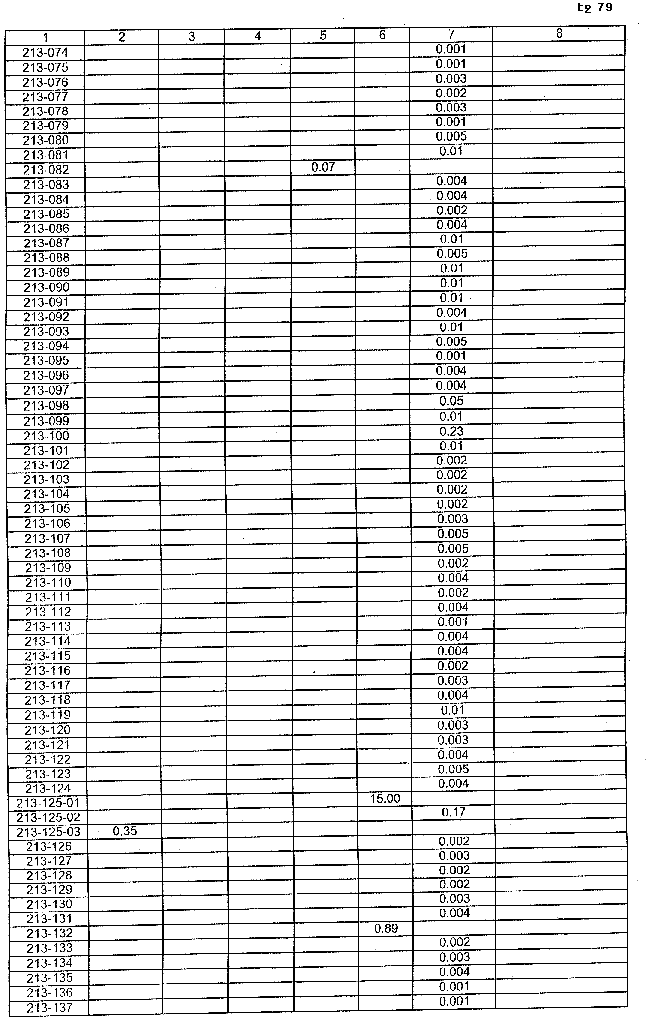 tg 79
1 2 3 4 5 6 7 8
213-074 0.001
213-075 0.001
213-076 0.003
213-077 0.002
213-078 0.003
213-079 0.001
213-080 0.005
213-081 0.01
213-082 0.07
213-083 0.004
213-084 0.004
213-085 0.002
213-086 0.004
213-087 0.01
213-088 0.005
213-089 0.01
213-090 0.01
213-091 0.01
213-092 0.004
213-093 0.01
213-094 0.005
213-095 0.001
213-096 0.004
213-097 0.004
213-098 0.05
213-099 0.01
213-100 0.23
213-101 0.01
213-102 0.002
213-103 0.002
213-104 0.002
213-105 0.002
213-106 0.003
213-107 0.005
213-108 0.005
213-109 0.002
213-110 0.004
213-111 0.002
213-112 0.004
213-113 0.001
213-114 0.004
213-115 0.004
213-116 0.002
213-117 0.003
213-118 0.004
213-119 0.01
213-120 0.003
213-121 0.003
213-122 0.004
213-123 0.005
213-124 0.004
213-125-01 15.00
213-125-02 0.17
213-125-03 0.35
213-126 0.002
213-127 0.003
213-128 0.002
213-129 0.002
213-130 0.003
213-131 0.004
213-132 0.89
213-133 0.002
213-134 0.003
213-135 0.004
213-136 0.001
213-137 0.001